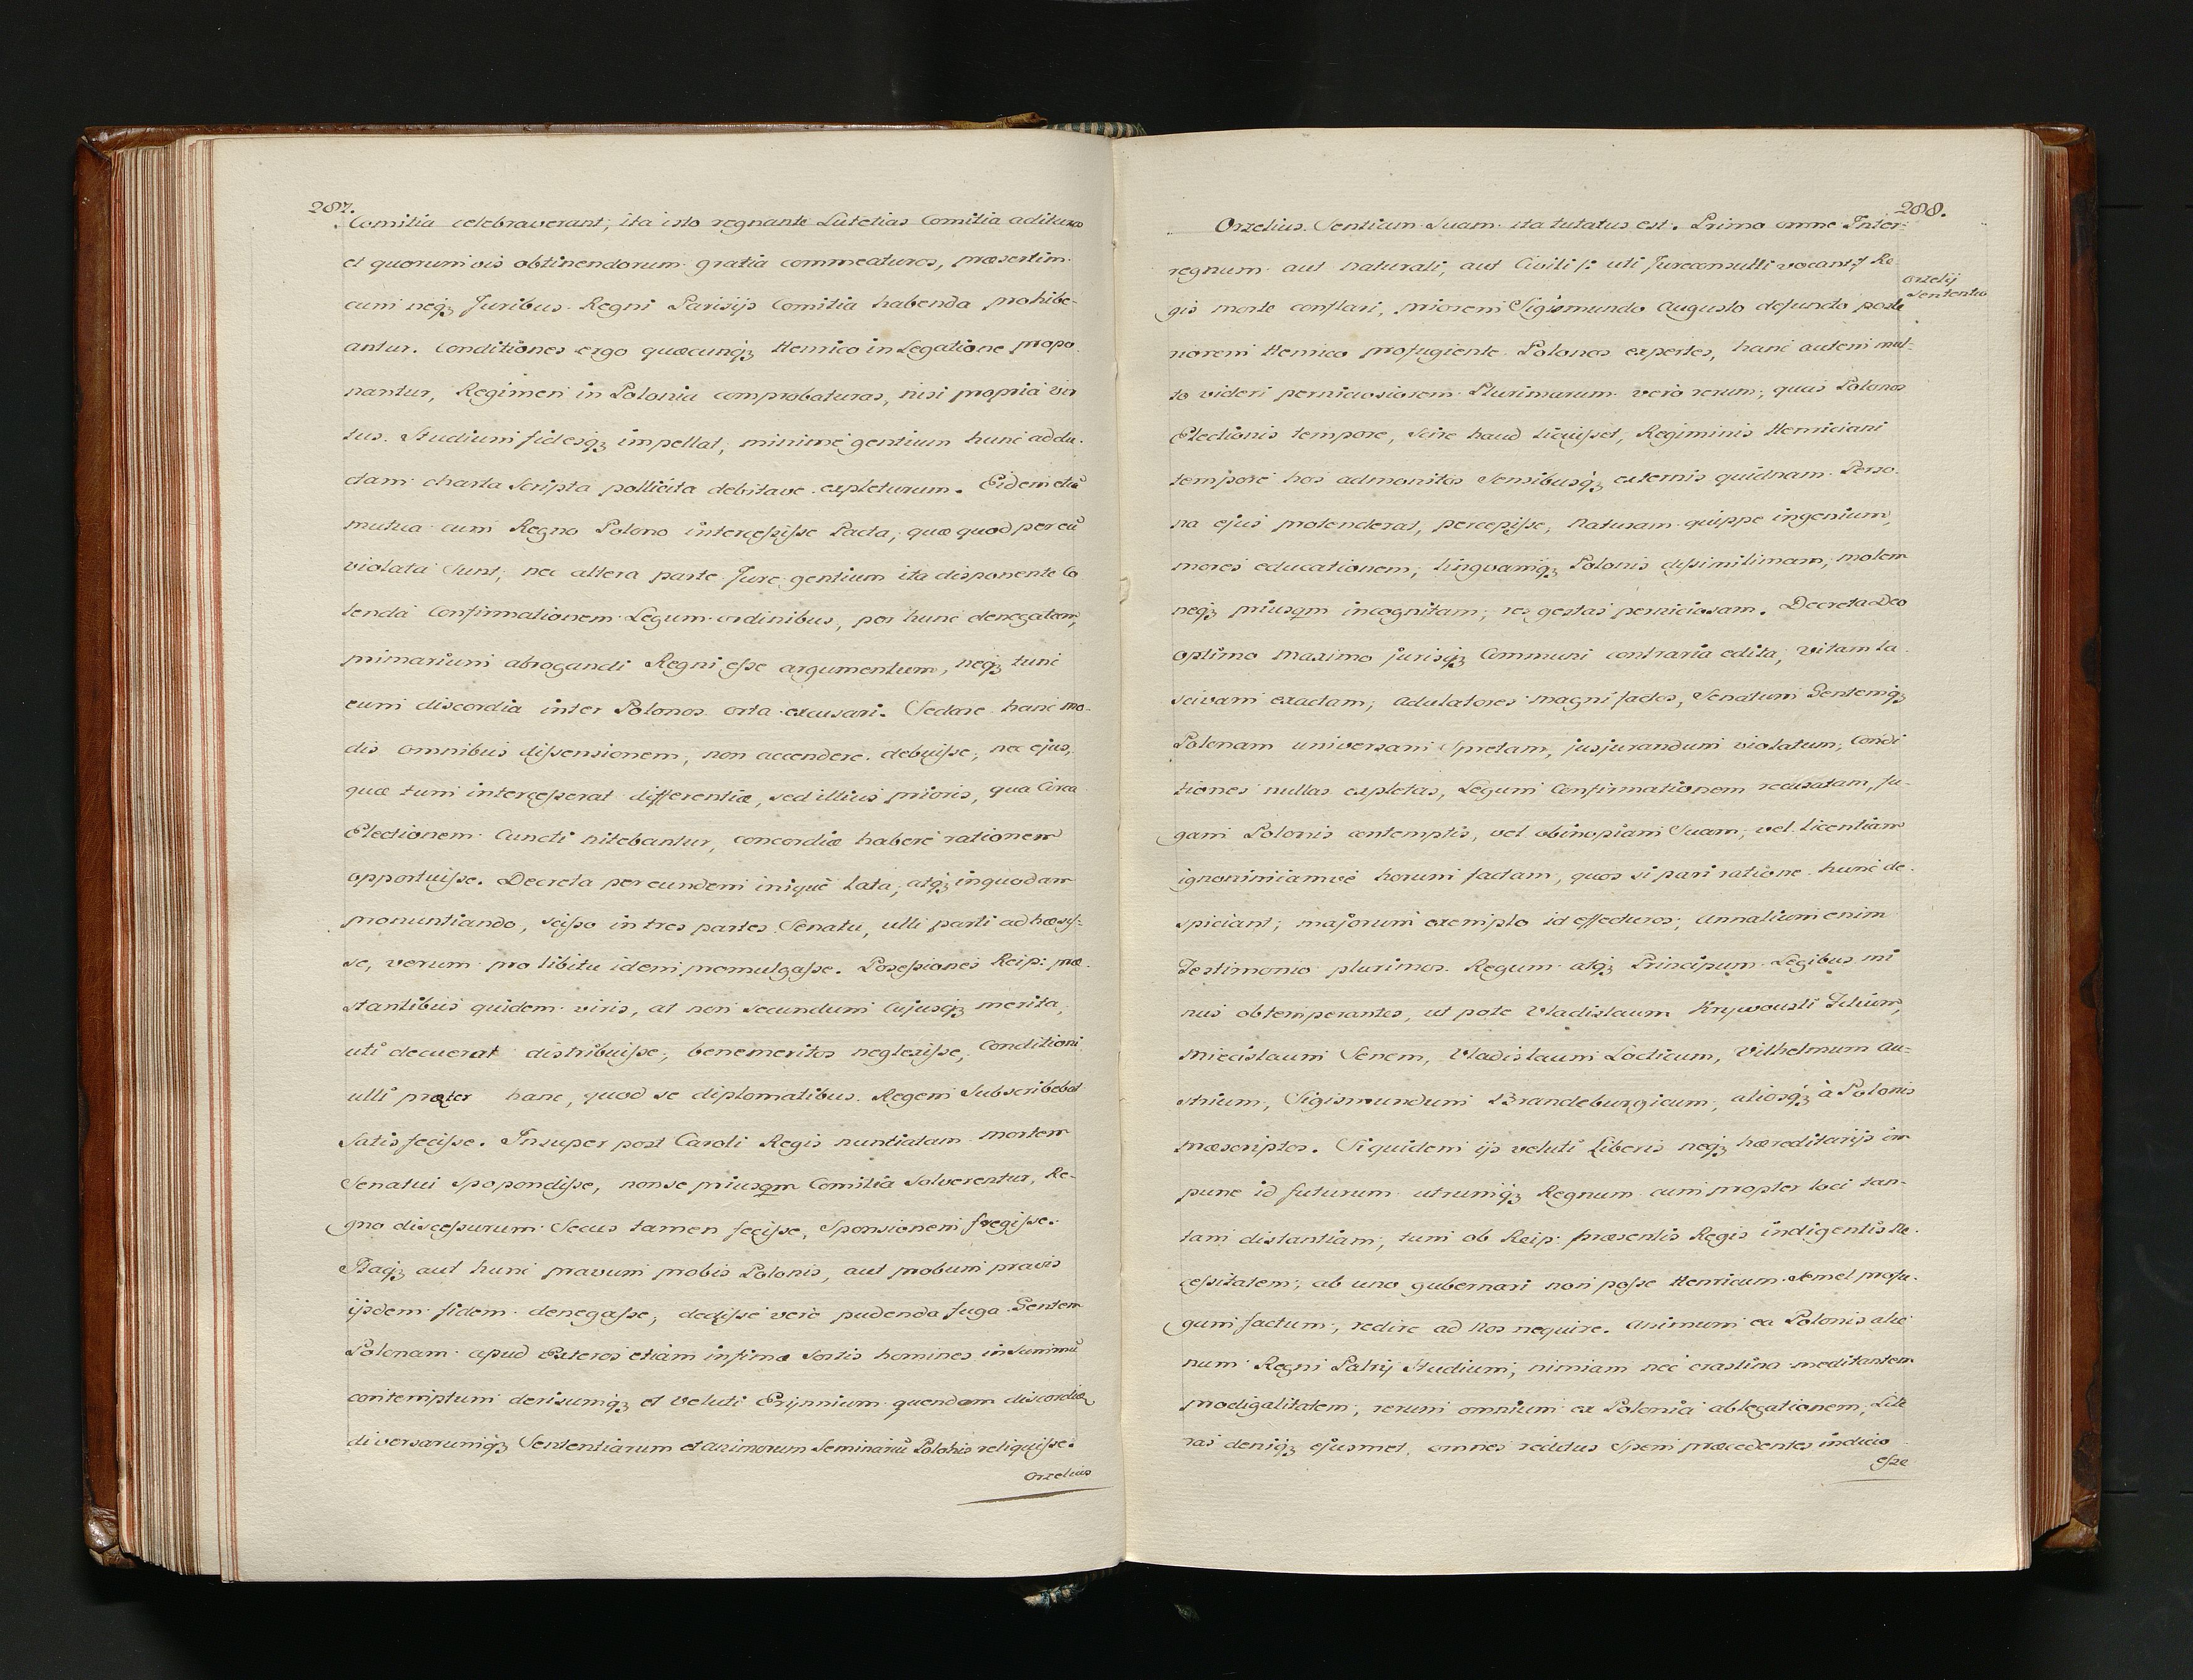 287.
Comitia celebraverant; ita isto regnante Lutetias Comitia adituros
et quorumvis obtinendorum gratia commeaturos, præsertim
cum neqȝ Juribus Regni Parisijs Comitia habenda prohibe-
antur. Conditiones ergo quæcunqȝ Henrico in Legatione propo
nantur, Regimen in Polonia comprobaturas, nisi propria vir
tus. Studium fidesqȝ impellat, minime gentium hunc addu.
ctam charta scripta pollicita debitave expleturum. Eidem etiā
mutua cum Regno Polono interceſsiſse Pacta, quæ quod per eū
violata sunt, nec altera parte Jure gentium ita disponente Co
lenda Confirmationem Legum ordinibus, per hunc denegatam,
primarium abrogandi Regni eſse argumentum, neqȝ tunc
eum discordia inter Polonos orta excusari. Sedare hanc mo-
dis omnibus diſsensionem, non accendere debuiſse, nec ejus,
quæ tum interceſserat differentiæ, sed illius prioris, qua Circa
Electionem Cuncti nitebantur, concordiæ habere rationem
opportuiſse. Decreta per eundem iniquè lata, atqȝ in quodam
pronuntiando, sciſso in tres partes Senatu, ulli parti adhæsiſ-
se, verum pro libitu idem promulgaſse. Poseſsiones Reip: præ-
stantibus quidem viris, at non secundum Cujusqȝ merita,
uti decuerat distribuiſse, benemeritos neglexiſse, Conditioni
ulli præter hanc, quod se diplomatibus Regem Subscribebat
Satisfeciſse. Insuper post Caroli Regis nuntiatam mortem
Senatui spopondiſse, non se priusqm Comitia Solverentur, Re-
gno disceſsurum Secus tamen feciſse, Sponsionem fregiſse.
Itaqȝ aut hunc pravum probis Polonis, aut probum pravis
ijsdem fidem denegaſse, dediſse verò pudenda fuga Gentem
Polonam apud Exteros etiam infimæ Sortis homines in Summū
contemptum derisumqȝ et veluti Erijnnium quendam discordiæ
diversarumqȝ Sententiarum et animorum Seminariū Polonis reliquiſse.
Orzelius
288.
Orzelius Sentium Suam ita tutatus est. Primo omne Inter-
regnum aut naturali, aut Civili /: uti Jureconsulti vocant :/ Re
gis morte conflari, priorem Sigismundo Augusto defuncto poste
Orzelij
Sententia
riorem Henrico profugiente Polonos expertos, hanc autem mul-
to videri perniciosiorem Plurimarum verò rerum, quas Polonos
Electionis tempore, scire haud licuiſset, Regiminis Henriciani
tempore hos admonitos Semibusqȝ externis quidnam Perso
na ejus protenderat, percepiſse, Naturam quippe ingenium,
mores educationem, linguamqȝ Polonis diſsimilimam, molem
neqȝ priusqm incognitam, res gestas perniciosam. Decreta Deo
optimo maximo jurisqȝ Communi contraria edita, vitam la-
scivam exactam, adulatores magni factos, Senatum Gentemqȝ
Polonam universam Spretam, jusjurandum violatum, Condi
tiones nullas expletas, Legum Confirmationem recusatam, fu-
gam Polonis contemptis, vel ob inopiam Suam, vel licentiam
ignominiamve horum factam, quos si pari ratione hunc de-
spiciant, majorum exemplo id effecturos, annalium enim
Testimonio plurimos Regum atqȝ Principum Legibus mi
nus obtemperantes, ut pote Vladislaum Krzywousti Filium,
Miecislaum Senem, Vladislaum Locticum, Vilhelmum au-
strium, Sigismundum Brandeburgicum, aliosqȝ à Polonis
præscriptos. Siquidem ijs veluti Liberis neqȝ hæreditarijs im
pune id futurum utrumqȝ Regnum cum propter loci tan-
tam distantiam, tum ob Reip: præsentis Regis indigentis ne-
ceſsitatem, ab uno gubernari non poſse Henricum Semel profu-
gum factum, redire ad Nos nequire. Animum ea Polonis alie
num Regni Patrij Studium, nimiam nec crastina meditantem
prodigalitatem, rerum omnium ex Polonia ablegationem, Litt
ras deniqȝ ejusmet, omnes reditus Spem præcedentes indicio
eſse